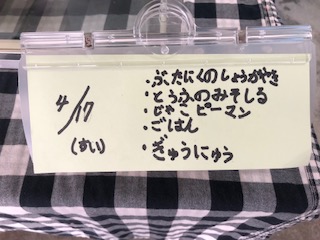 4/17
(すい)
・ぶたにくのしょうがやき
・とうふのみそしる
・じゃこピーマン
・ごはん
・ぎゅうにゅう